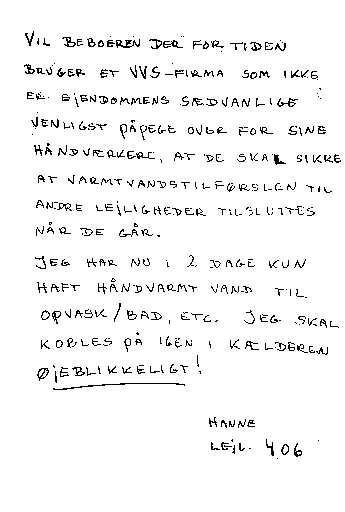 VIL BEBOEREN DER FOR TIDEN
BRUGER ET VVS-FIRMA SOM IKKE
ER EJENDOMMENS SÆDVANLIGE
VENLIGST PÅPEGE OVER FOR SINE
HÅNDVÆRKERE, AT DE SKAL SIKRE
AT VARMTVANDSTILFØRSLEN TIL
ANDRE LEJLIGHEDER TILSLUTTES
NÅR DE GÅR.
JEG HAR NU I 2 DAGE KUN
HAFT HÅNDVARMT VAND TIL
OPVASK/BAD, ETC. JEG SKAL
KOBLES PÅ IGEN I KÆLDEREN
ØJEBLIKKELIGT!
HANNE
LEJL. 406